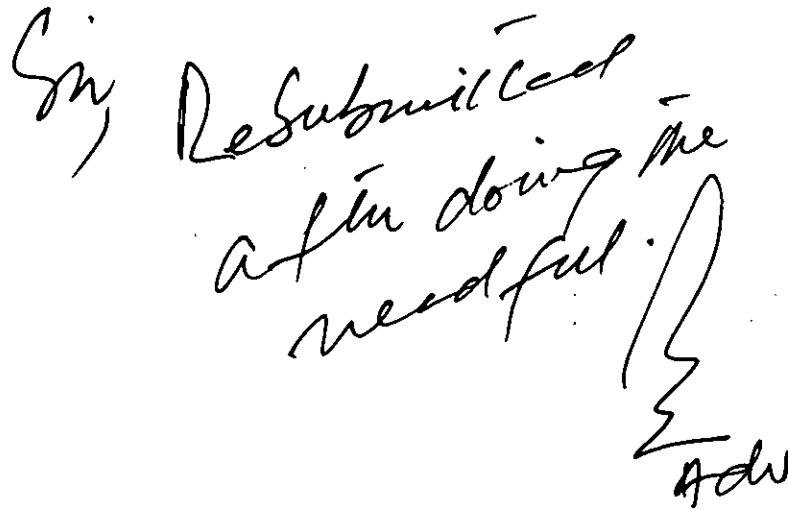 Sir, Resubmitted
after doing the
needful.
Adv